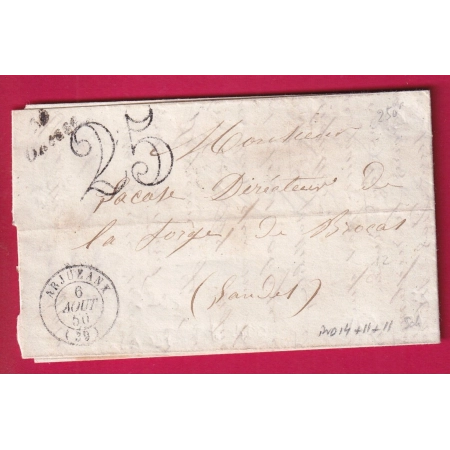 25
250
Monsieur
Lacaze Directeur de
la forge de Brocas
(Landes)
ARJUZANX
6
AOUT
50
(39)
AVD14 + 11 + 11